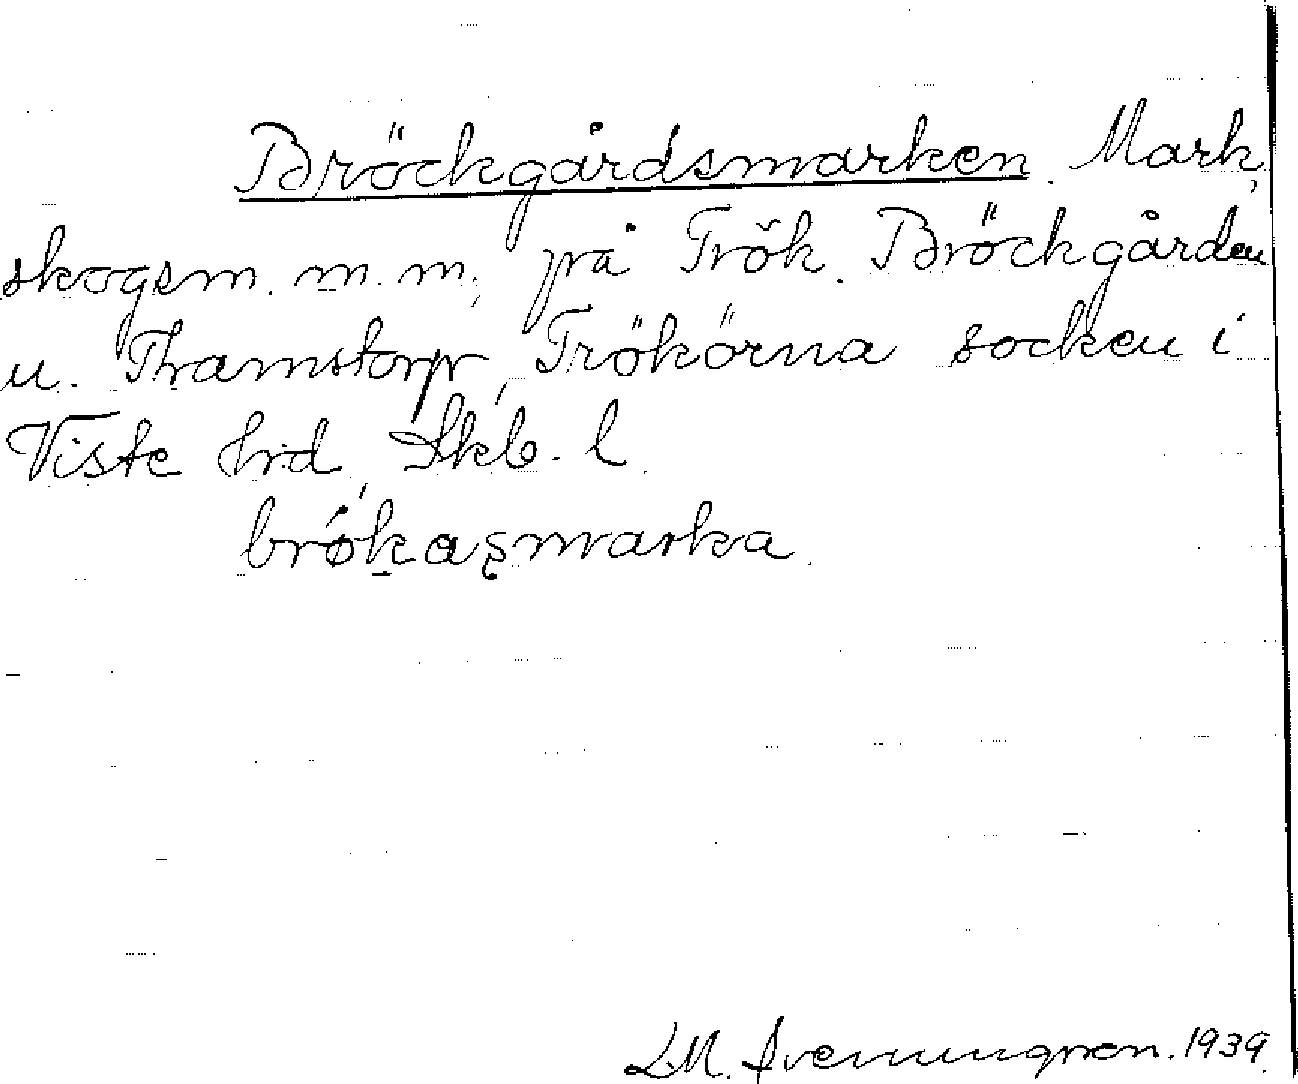 Bröckgårdsmarken. Mark,
skogsm. m. m., på Trök. Bröckgården
u. Thamstorp, Trökörna socken i
Viste hrd, Skb. l.
brökasmarka.
1939.